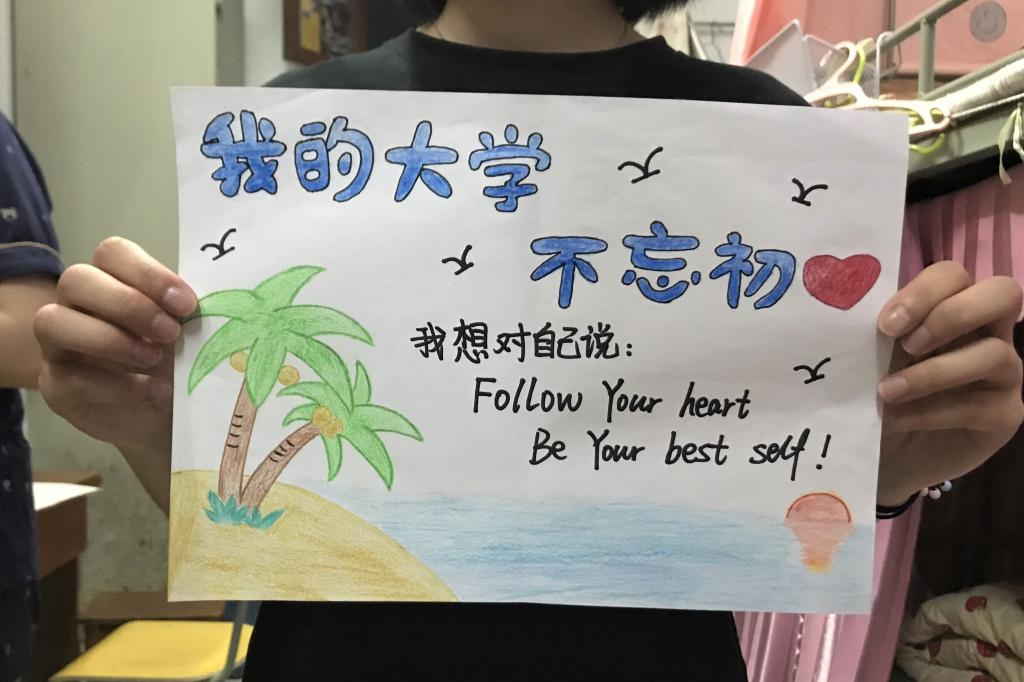 我的大学
不忘初
我想对自己说:
Follow Your heart
Be Your best self!